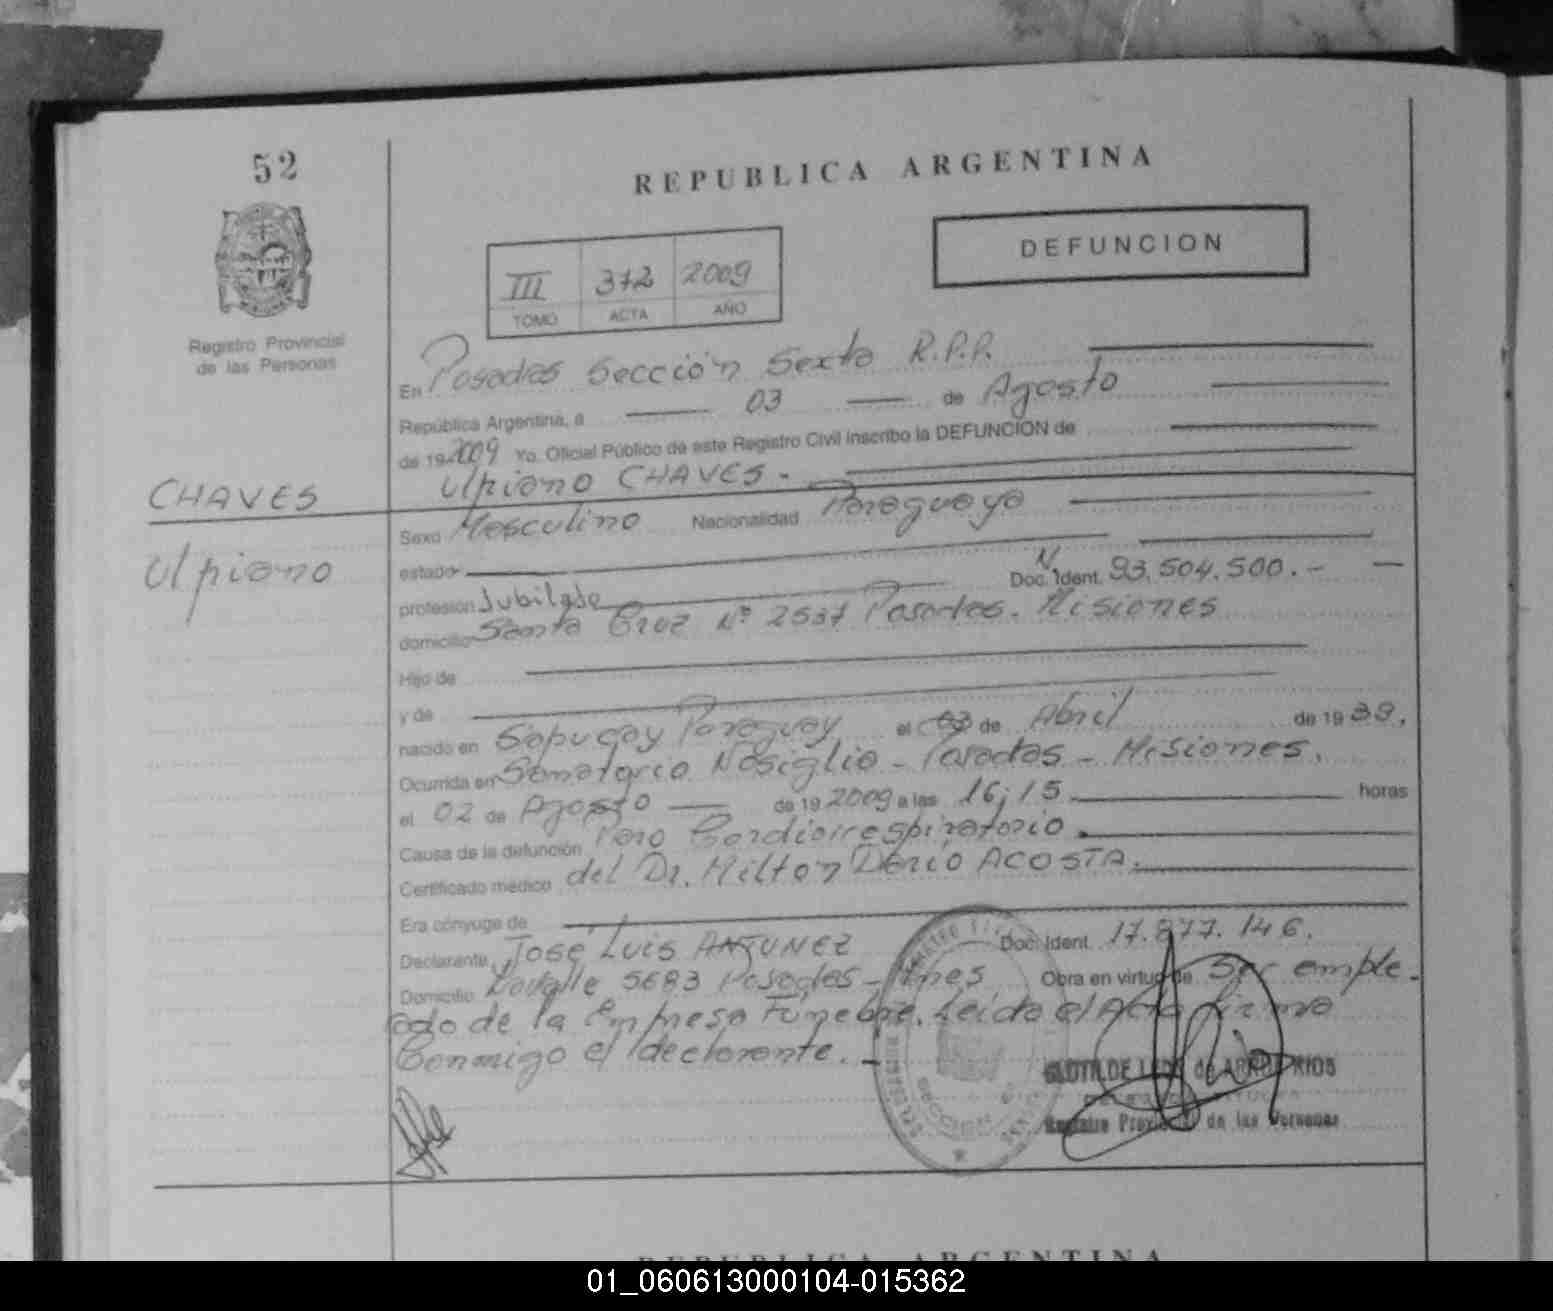 52
REPUBLICA ARGENTINA
DEFUNCION
III 372 2009
TOMO ACTA AÑO
Registro Provincial
de las Personas
En Posadas Sección Sexta R.P.P.
República Argentina, a 03 de Agosto
de 19 2009 Yo. Oficial Público de este Registro Civil inscribo la DEFUNCION de
CHAVES
Ulpiano CHAVES.-
Ulpiano
Sexo Masculino Nacionalidad Paraguaya
estado
profesión Jubilado Doc. Ident. N 93.504.500.-
domicilio Santa Cruz Nº 2537 Posadas. Misiones
Hijo de
y de
nacido en Sapucay Paraguay el 03 de Abril de 19 39.
Ocurrida en Sanatorio Nosiglia - Posadas - Misiones.
el 02 de Agosto de 19 2009 a las 16;15 horas
Causa de la defunción Paro Cardiorrespiratorio.
Certificado médico del Dr. Milton Dario ACOSTA.
Era cónyuge de
Declarante José Luis ANTUNEZ Doc. Ident. 17.877.146.
Domicilio Lavalle 5683 Posadas - Mnes Obra en virtud de Ser emple-
ado de la Empresa Fúnebre. Leída el Acta firma
Conmigo el declarante. -
CLOTILDE de RIOS
Registro Provincial de las Personas
REPUBLICA ARGENTINA
01_060613000104-015362